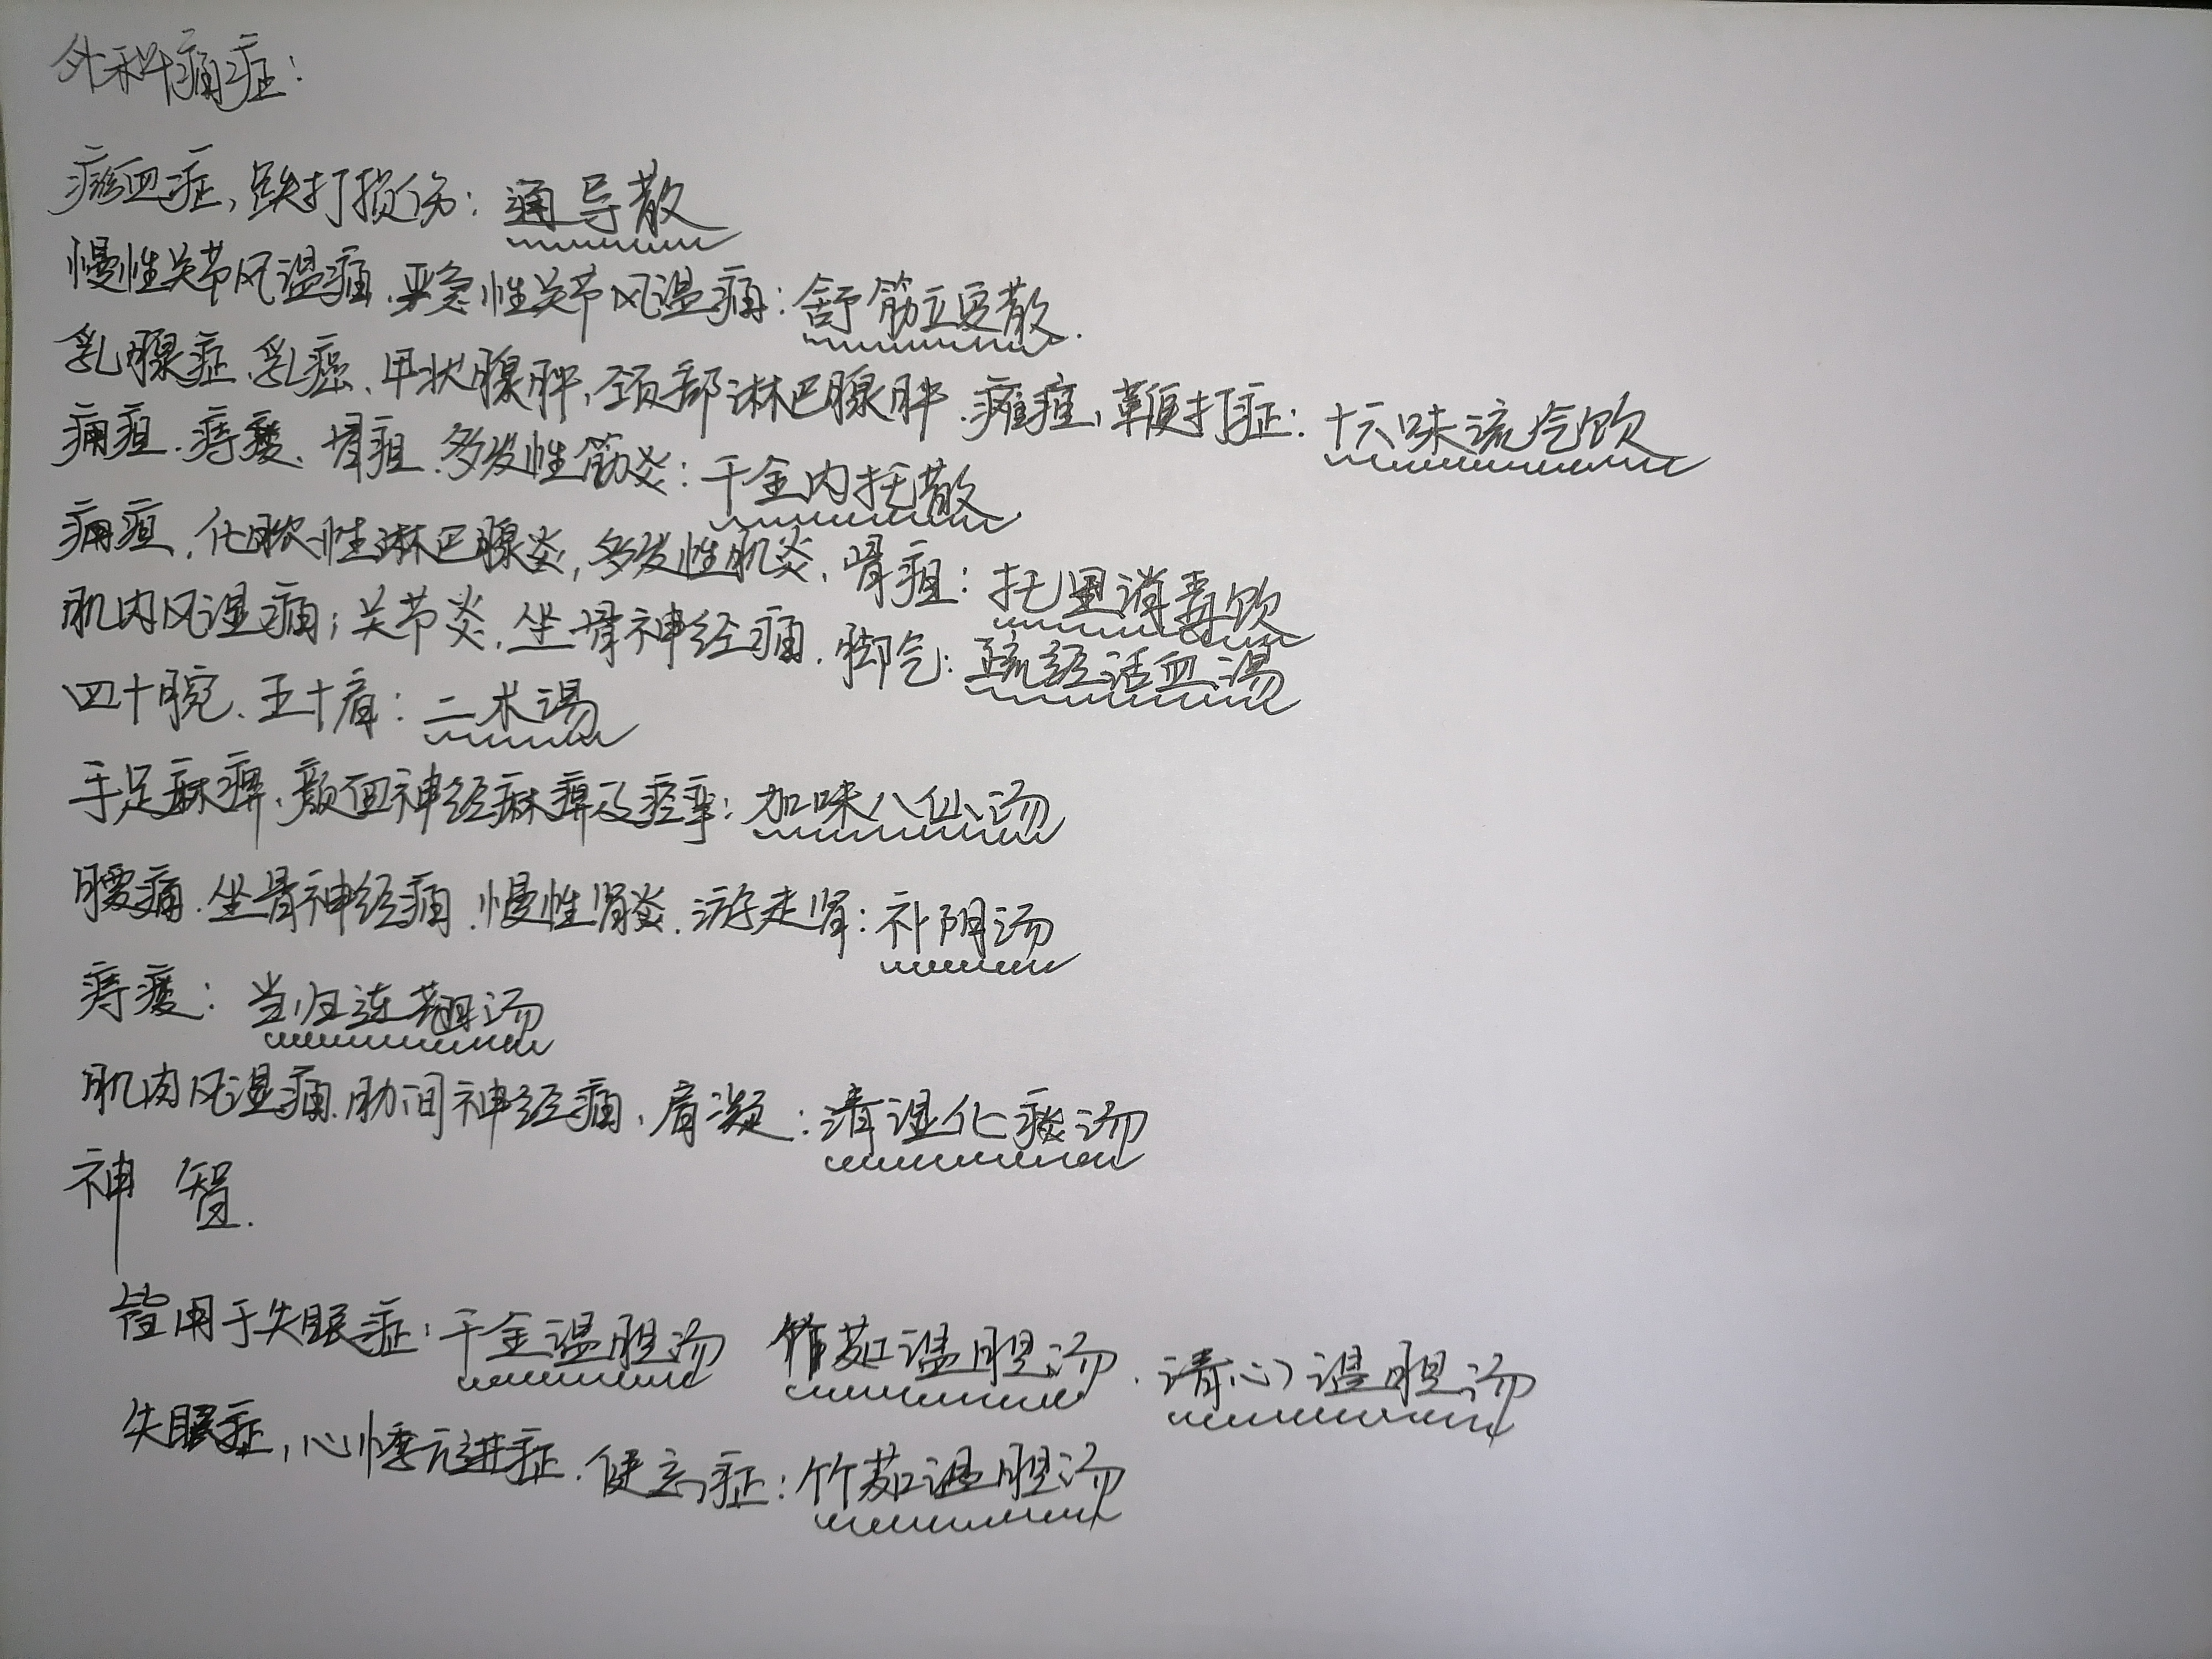 外科痛症：
瘀血症，跌打损伤：通导散
慢性关节风湿痛、亚急性关节风湿痛：舒筋立安散.
乳腺症、乳癌、甲状腺肿，颈部淋巴腺肿、瘫疽，鞭打症：十六味流气饮
痈疽、痔瘘、骨疽、多发性筋炎：千金内托散
痈疽，化脓性淋巴腺炎，多发性肌炎、骨疽：托里消毒饮
肌肉风湿痛；关节炎，坐骨神经痛、脚气：疏经活血汤
四十腕、五十肩：二术汤
手足麻痹、颜面神经麻痹及痉挛：加味八仙汤
腰痛、坐骨神经痛、慢性肾炎、游走肾：补阴汤
痔瘘：当归连翘汤
肌肉风湿痛、肋间神经痛、肩凝：清湿化痰汤
神智.
皆用于失眠症：千金温胆汤 竹茹温胆汤、清心温胆汤
失眠症，心悸亢进症、健忘症：竹茹温胆汤